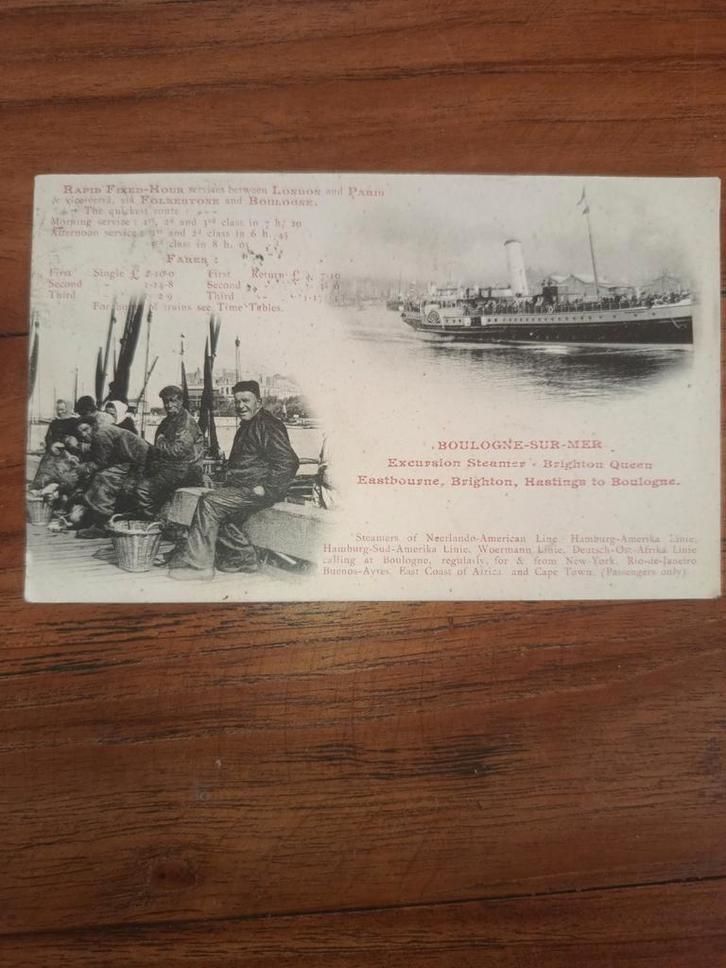 RAPID FIXED-HOUR services between LONDON and PARIS
& vice-versa, via FOLKESTONE and BOULOGNE.
The quickest route
Morning service : 1st, 2d and 3rd class in 7 h. 20
Afternoon service : 1st and 2d class in 6 h. 45
class in 8 h.
FARES :
First Single £ 2-10-0 First Return £ 4.
Second 1-14-8 Second
Third 2-9 Third
trains see Time Tables.
BOULOGNE-SUR-MER
Excursion Steamer - Brighton Queen
Eastbourne, Brighton, Hastings to Boulogne.
Steamers of Neerlando-American Line Hamburg-Amerika Linie,
Hamburg-Sud-Amerika Linie, Woermann Linie, Deutsch-Ost-Afrika Linie
calling at Boulogne, regularly, for & from New-York, Rio-de-Janeiro
Buenos-Ayres, East Coast of Africa and Cape Town. (Passengers only)